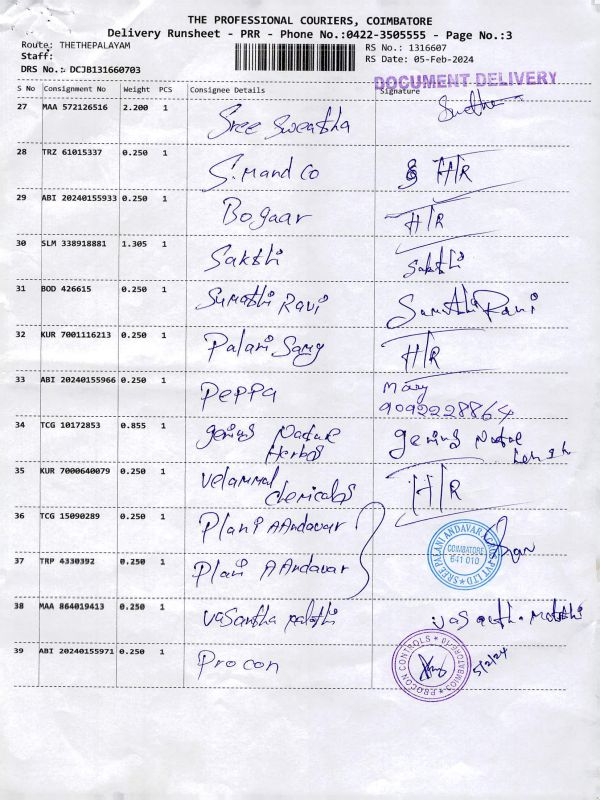 THE PROFESSIONAL COURIERS, COIMBATORE
Delivery Runsheet - PRR - Phone No.:0422-3505555 - Page No.:3
Route: THETHEPALAYAM
Staff:
DRS No.: DCJB131660703
RS No.: 1316607
RS Date: 05-Feb-2024
DOCUMENT DELIVERY
S No Consignment No Weight PCS Consignee Details Signature
27 MAA 572126516 2.200 1 Sree Sweatha
28 TRZ 61015337 0.250 1 S. Mand Co H/R
29 ABI 20240155933 0.250 1 Bogaar H/R
30 SLM 338918881 1.305 1 Sakthi Sakthi
31 BOD 426615 0.250 1 Sumathi Ravi Sumathi Ravi
32 KUR 7001116213 0.250 1 Palani Samy H/R
33 ABI 20240155966 0.250 1 Peppa Mary
9092228864
34 TCG 10172853 0.855 1 genius Nature
Herbs
genius
35 KUR 7000640079 0.250 1 Velammal
chemicals
H/R
36 TCG 15090289 0.250 1 Plani AAndavar
37 TRP 4330392 0.250 1 Plani AAndavar
SREE PALANI ANDAVAR PVT LTD
COIMBATORE
641 010
38 MAA 864019413 0.250 1 Vasantha
39 ABI 20240155971 0.250 1 Procon
PROCON CONTROLS
5/2/24